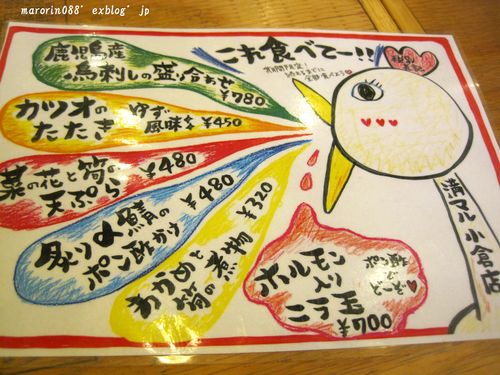 marorin088' exblog' jp
これ食べてー!!
鹿児島産
鳥刺しの盛り合わせ
¥780
カツオの
たたき
ゆず
風味
¥450
菜の花と筍の
天ぷら
¥480
炙り〆鯖の
ポン酢かけ
¥480
わかめと
筍の煮物
¥320
ホルモン
入り
ニラ玉
¥700
ポン酢
で
どーぞ
満マル小倉店